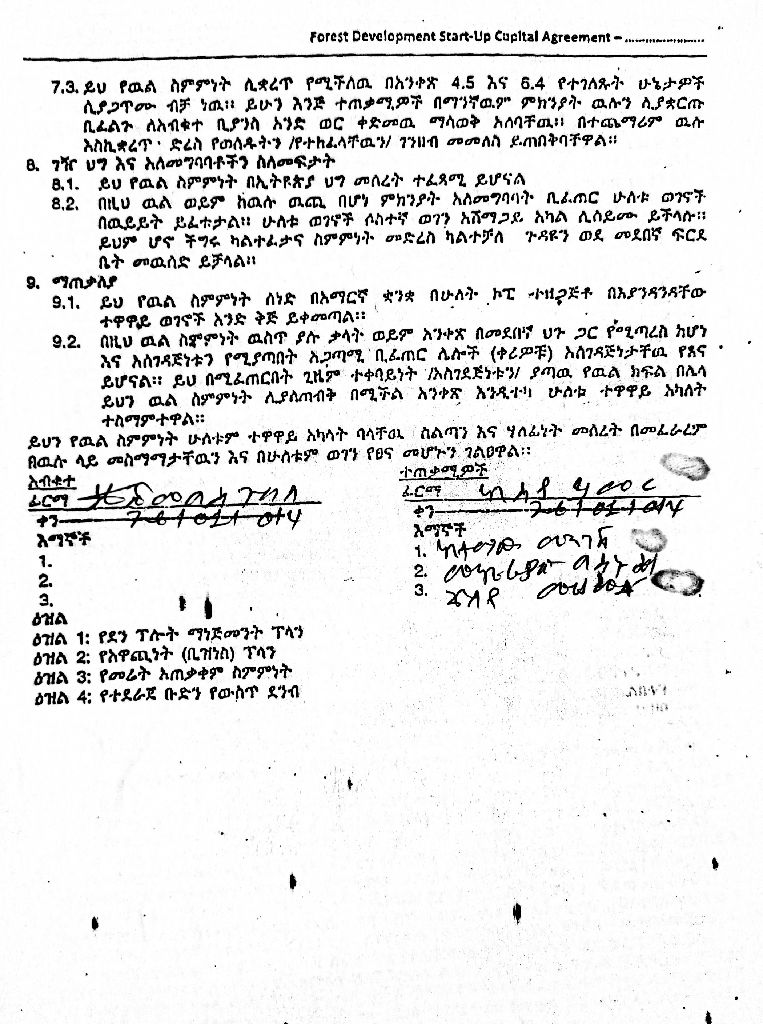 Forest Development Start-Up Capital Agreement – ......................
7.3. ይህ የዉል ስምምነት ሊቋረጥ የሚችለዉ በአንቀጽ 4.5 እና 6.4 የተገለጹት ሁኔታዎች
ሲያጋጥሙ ብቻ ነዉ። ይሁን እንጅ ተጠቃሚዎች በማንኛዉም ምክንያት ዉሉን ሲያቋርጡ
ቢፈልጉ ለአብቁተ ቢያንስ አንድ ወር ቀድመዉ ማሳወቅ አለባቸዉ። በተጨማሪም ዉሉ
እስኪቋረጥ ድረስ የወሰዱትን /የተከፈላቸዉን/ ገንዘብ መመለስ ይጠበቅባቸዋል።
8. ገዥ ህግ እና አለመግባባቶችን ስለመፍታት
8.1. ይህ የዉል ስምምነት በኢትዮጵያ ህግ መሰረት ተፈጻሚ ይሆናል
8.2. በዚህ ዉል ወይም ከዉሉ ዉጪ በሆነ ምክንያት አለመግባባት ቢፈጠር ሁለቱ ወገኖች
በዉይይት ይፈተታል። ሁለቱ ወገኖች ሶስተኛ ወገን አሸማጋይ አካል ሊሰይሙ ይችላሉ።
ይህም ሆኖ ችግሩ ካልተፈታና ስምምነት መድረስ ካልተቻለ ጉዳዩን ወደ መደበኛ ፍርድ
ቤት መዉሰድ ይቻላል።
9. ማጠቃለያ
9.1. ይህ የዉል ስምምነት ሰነድ በአማርኛ ቋንቋ በሁለት ኮፒ ተዘጋጅቶ በእያንዳንዳቸው
ተዋዋይ ወገኖች አንድ ቅጅ ይቀመጣል።
9.2. በዚህ ዉል ስምምነት ዉስጥ ያሉ ቃላት ወይም አንቀጽ በመደበኛ ህጉ ጋር የሚጣረስ ከሆነ
እና አስገዳጅነቱን የሚያጣበት አጋጣሚ ቢፈጠር ሌሎች (ቀሪዎቹ) አስገዳጅነታቸዉ የጸና
ይሆናል። ይህ በሚፈጠርበት ጊዜም ተቀባይነት /አስገደጅነቱን/ ያጣዉ የዉል ክፍል በሌላ
ይህን ዉል ስምምነት ሊያጠብቅ በሚችል አንቀጽ እንዲተካ ሁለቱ ተዋዋይ አካላት
ተስማምተዋል።
ይህን የዉል ስምምነት ሁለቱም ተዋዋይ አካላት ባላቸዉ ስልጣን እና ሃላፊነት መሰረት በመፈራረም
በዉሉ ላይ መስማማታቸዉን እና በሁለቱም ወገን የፀና መሆኑን ገልፀዋል።
አብቁተ
ፊርማ
ቀን
እማኞች
1.
2.
3.
ተጠቃሚዎች
ፊርማ
ቀን
እማኞች
1.
2.
3.
ዕዝል
ዕዝል 1: የደን ፕሎት ማነጅመንት ፕላን
ዕዝል 2: የአዋጪነት (ቢዝነስ) ፕላን
ዕዝል 3: የመሬት አጠቃቀም ስምምነት
ዕዝል 4: የተደራጀ ቡድን የውስጥ ደንብ